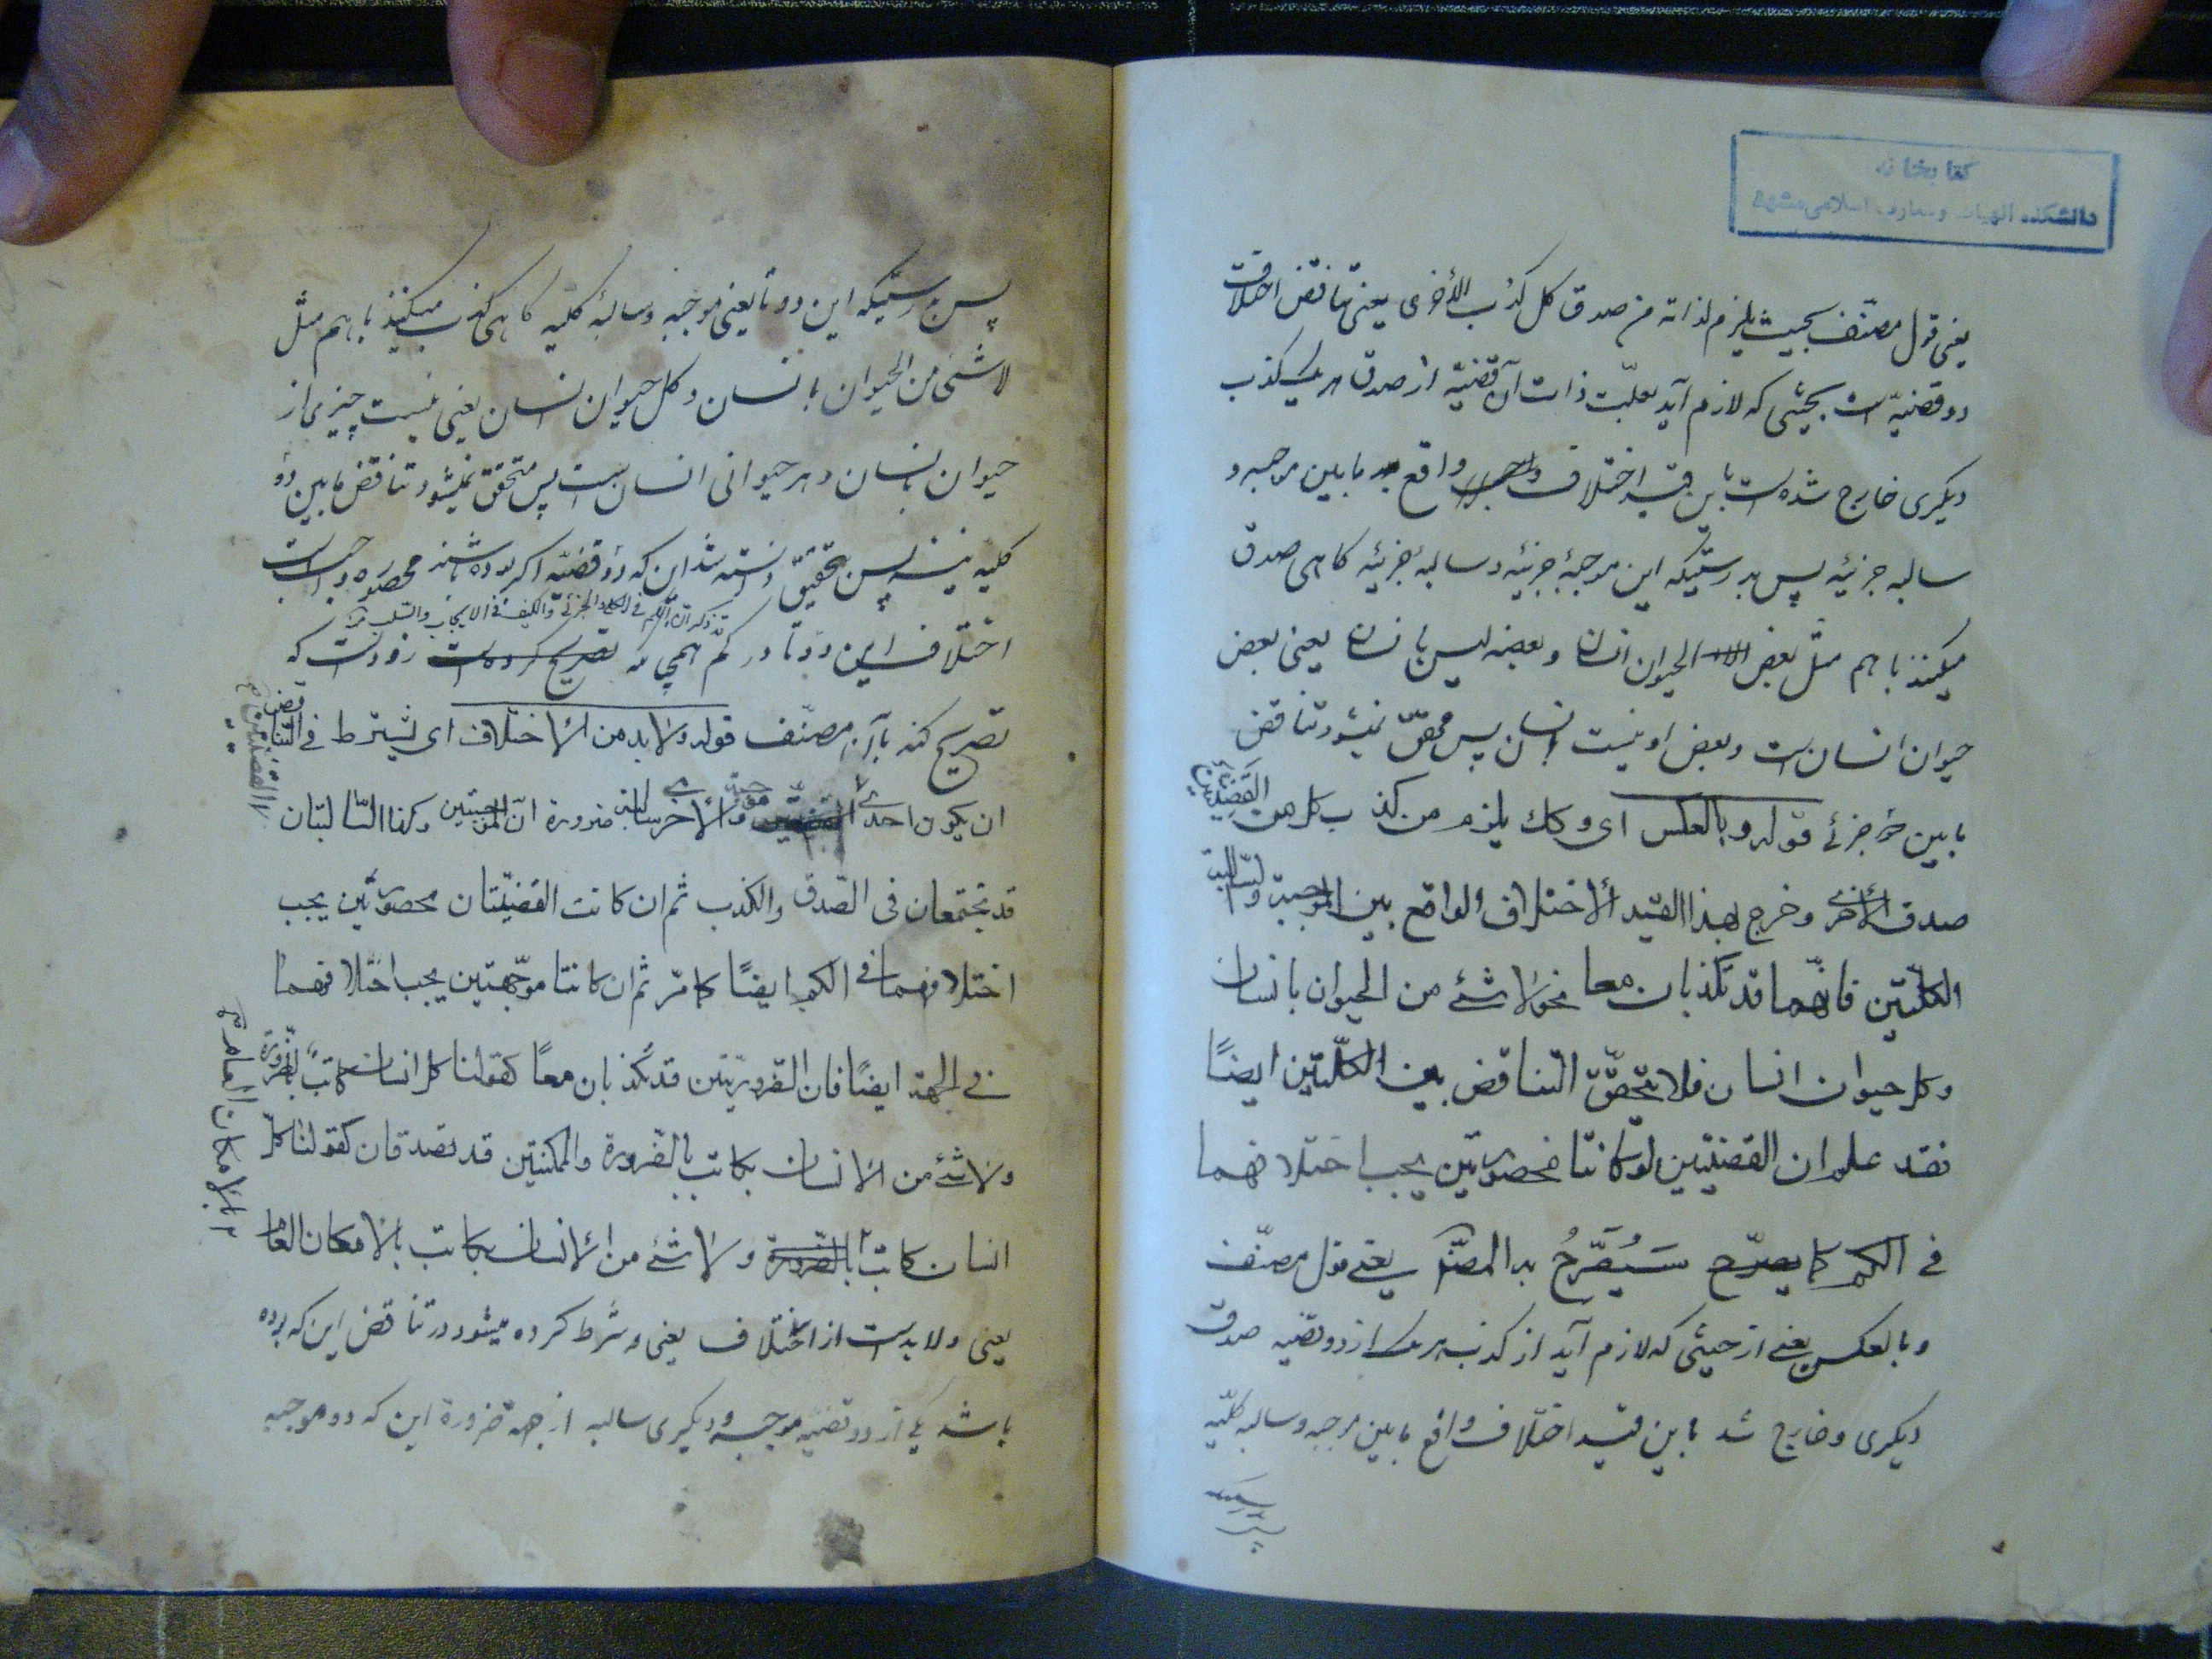 کتابخانه
دانشکده الهیات و معارف اسلامی مشهد
یعنی قول مصنّف بحیث یلزم لذاته من صدق کل کذب الأخری یعنی تناقض اختلاف
دو قضیّه است بحیثی که لازم آید بعلّت ذات آن قضیّه از صدق هر یک کذب
دیگری خارج شده است باین قید اختلاف واقع مابین موجبه و
سالبه جزئیه پس بدرستیکه این موجبهٔ جزئیّه و سالبهٔ جزئیّه کاهی صدق
میکنند با هم مثل بعض الحیوان انسان و بعضه لیس بانسان یعنی بعض
حیوان انسان است و بعض او نیست انسان پس محقّق نمیشود تناقض
مابین دو جزئی قوله و بالعکس ای و کک یلزم من کذب کل من القضیّتین
صدق الأخری و خرج بهذا القید الأختلاف الواقع بین الموجبة والسّالبة
الکلیّتین فانّهما قد تکذبان معا نحو لا شئ من الحیوان بانسان
و کل حیوان انسان فلا یتحقّق التناقض بین الکلیّتین ایضًا
فقد علم ان القضیّتین لو کانتا محصورتین یجب اختلافهما
فی الکم کما یصرّح سَیُصَرِّحُ به المصنّف یعنی قول مصنّف
و بالعکس یعنی از حیثی که لازم آید از کذب هر یک از دو قضیّه صدق
دیگری و خارج شد باین قید اختلاف واقع مابین موجبه و سالبه کلیّه
پس بدرستیکه این دو تا یعنی موجبه و سالبهٔ کلیه کاهی کذب میکنند با هم مثل
لا شئ من الحیوان بانسان و کل حیوان انسان یعنی نیست چیزی از
حیوان انسان و هر حیوانی انسان است پس متحقق نمیشود تناقض مابین دو
کلیه نیز پس تحقیق دانسته شد این که دو قضیّه اکر بوده باشند محصوره واجب است
اختلاف این دو تا در کم همچنانکه تصریح کرده است زود است که
تصریح کند بآن مصنّف قوله ولابد من الأختلاف ای یشترط فی التناقض
ان یکون احدی القضیّتین موجبة والأخری سالبة ضرورة انّ الموجبتین و کذا السّالبتان
قد تجتمعان فی الصّدق والکذب ثم ان کانت القضیّتان محصورتین یجب
اختلافهما فی الکم ایضًا کما مرّ ثم ان کانتا موجّهتین یجب اختلافهما
فی الجهة ایضًا فان الضّروریّتین قد تکذبان معًا کقولنا کل انسان کاتب بالضّرورة
ولا شئ من الانسان بکاتب بالضّرورة والممکنتین قد تصدقان کقولنا کلّ
انسان کاتب بالضّرورة ولا شئ من الأنسان بکاتب بالامکان العام
بالامکان العام
یعنی و لابد است از اختلاف یعنی و شرط کرده میشود در تناقض این که بوده
باشد یکی از دو قضیّه موجبه و دیگری سالبه از جهة ضرورة این که دو موجبه